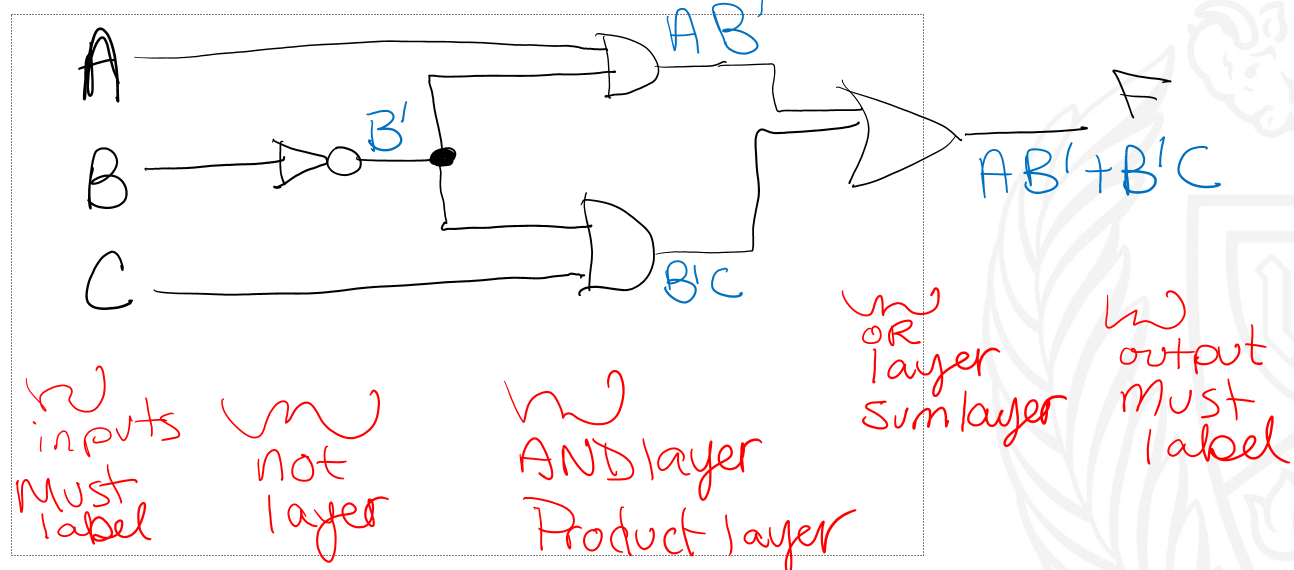 A
AB'
F
B'
B
AB'+B'C
C
B'C
inputs
Must
label
not
layer
ANDlayer
Product layer
OR
layer
sumlayer
output
Must
label